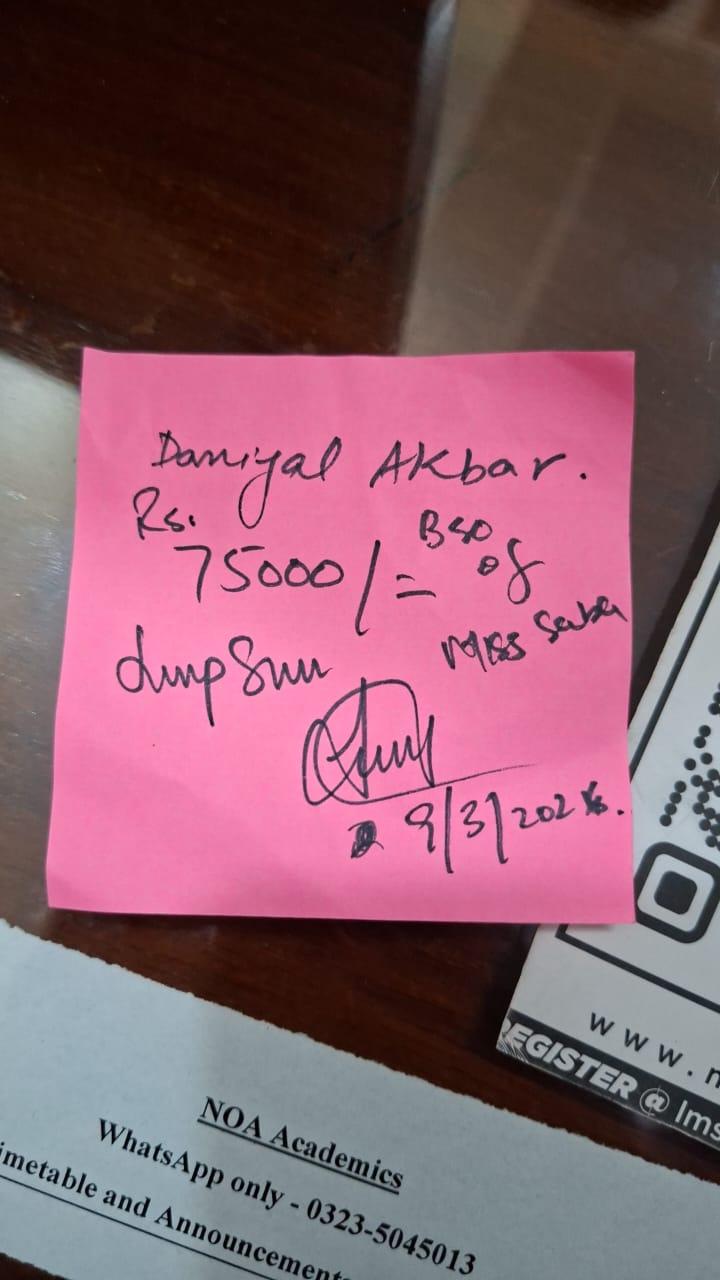 Daniyal Akbar.
Rs.
75000/=
BSO of
Miss Saba
lumpSum
9/3/202
www.
REGISTER @ lms
NOA Academics
WhatsApp only - 0323-5045013
imetable and Announcement